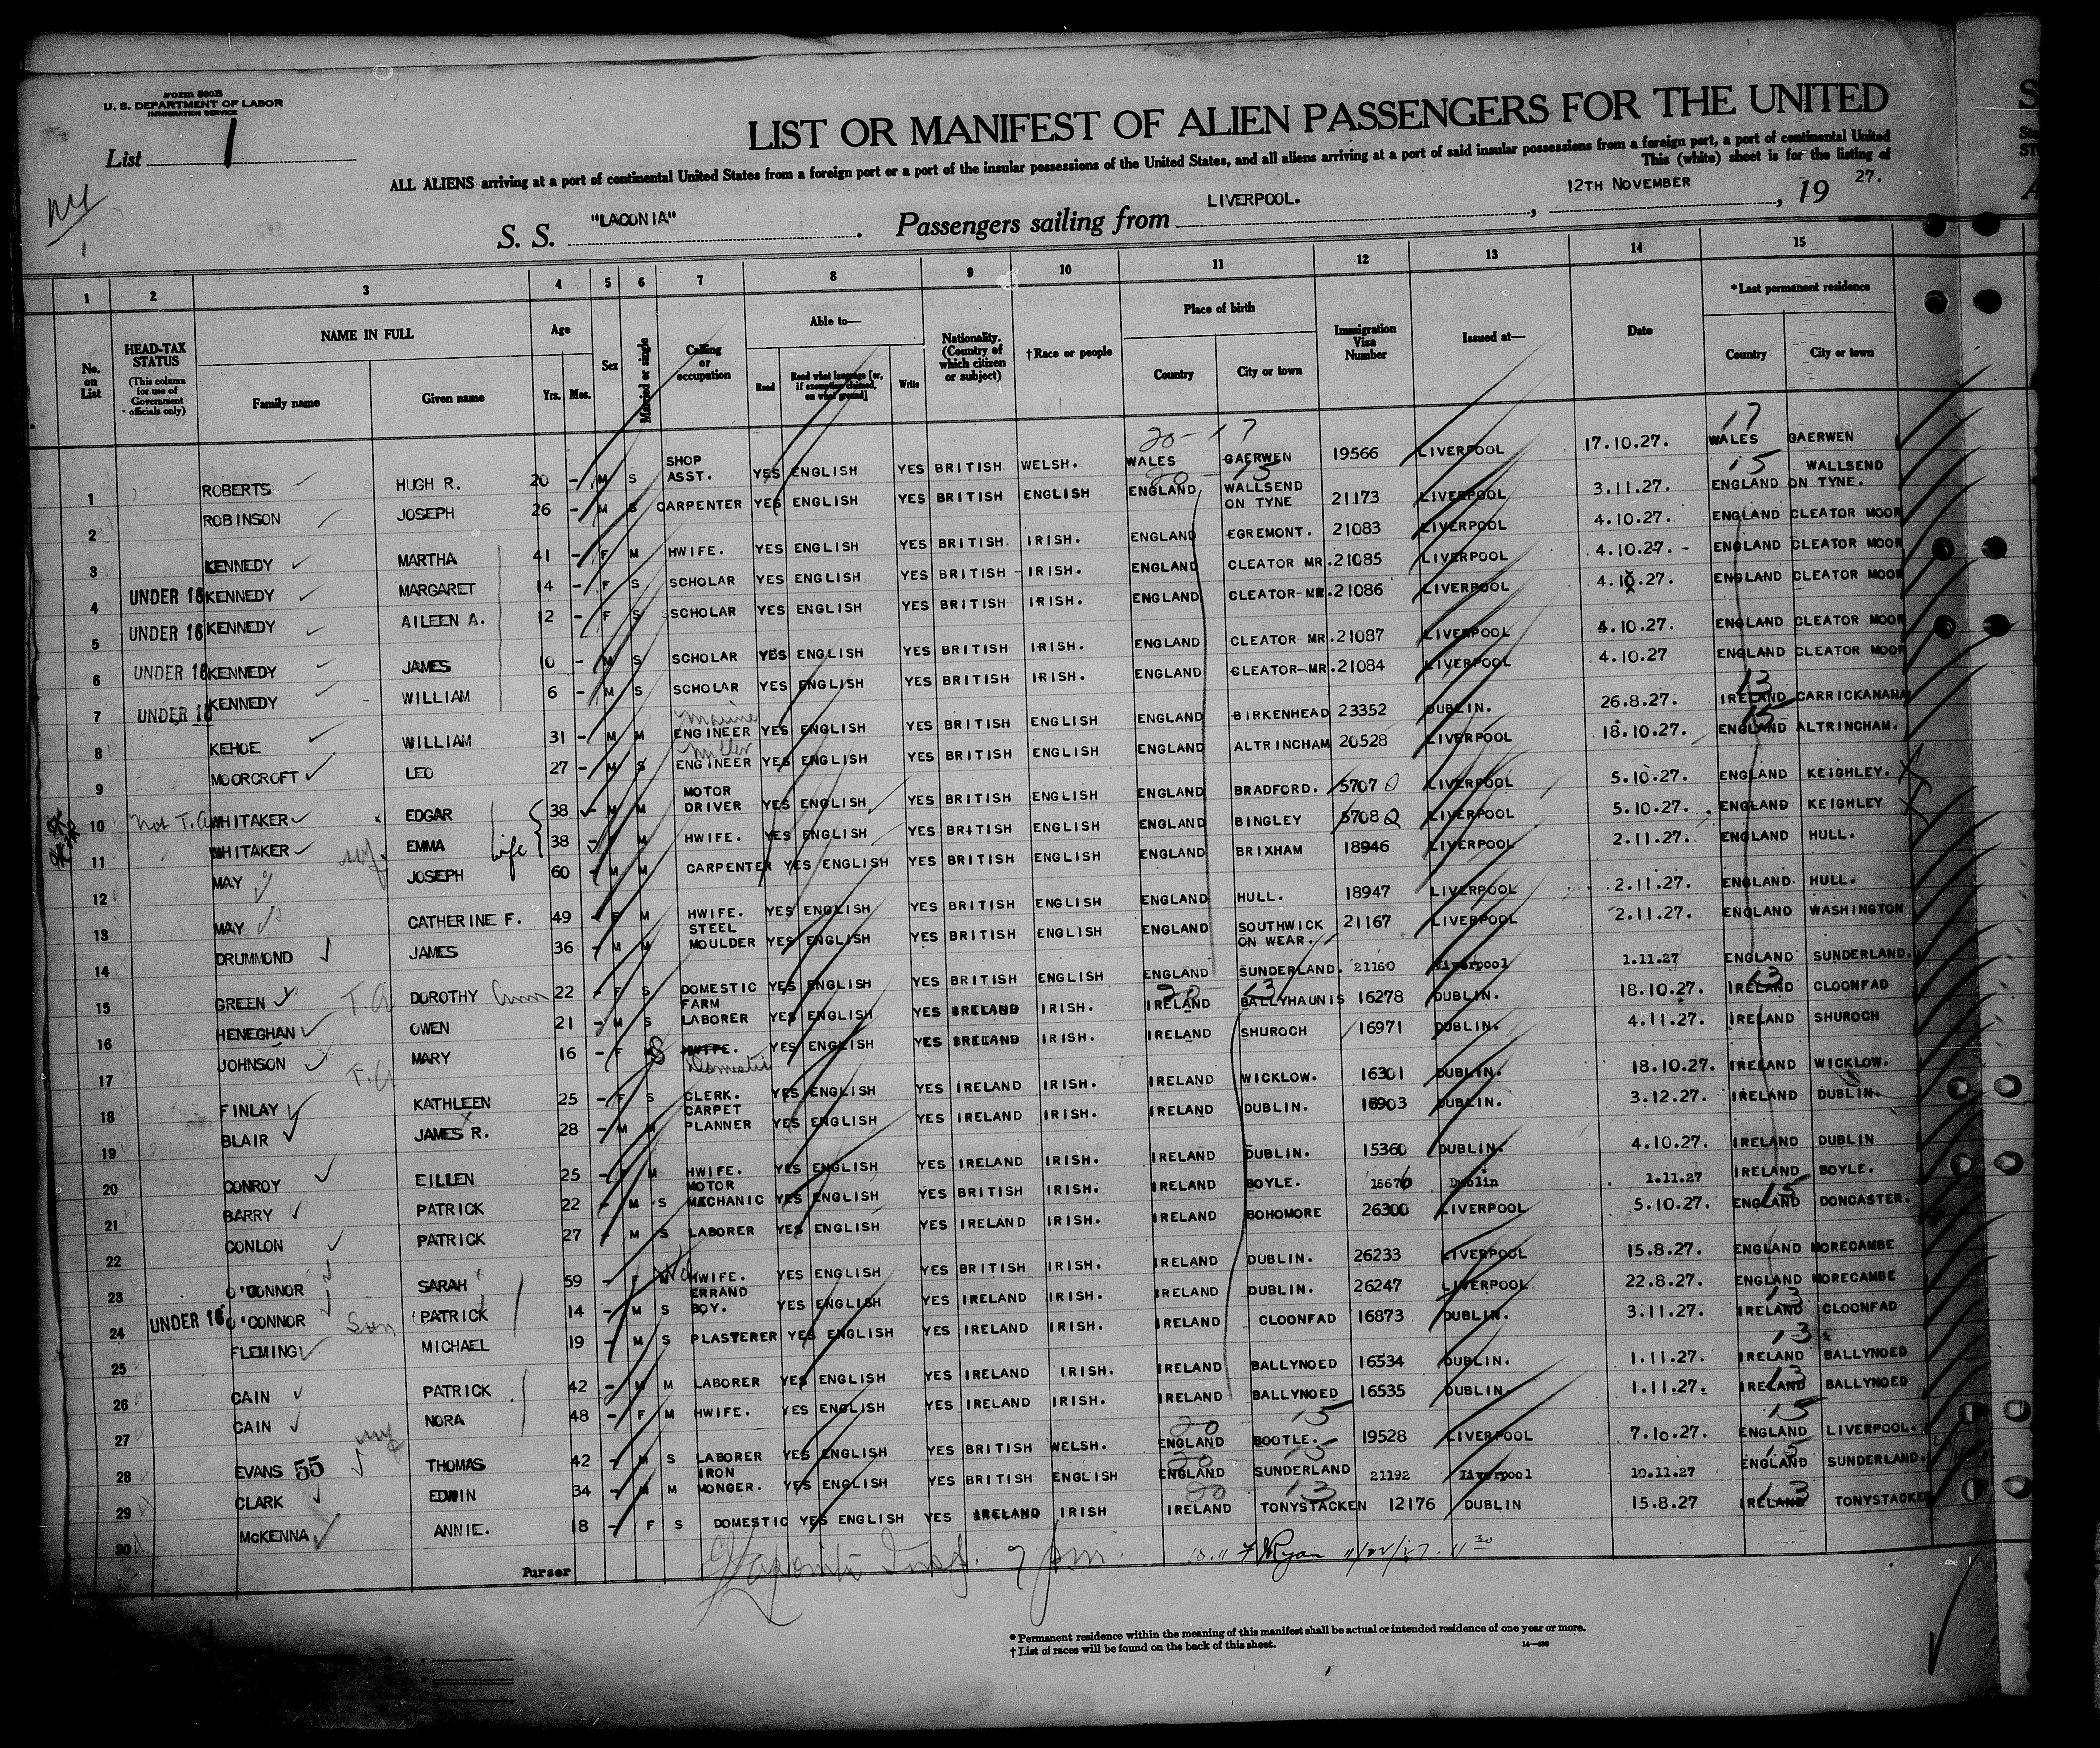 Form 500B
U. S. DEPARTMENT OF LABOR
IMMIGRATION SERVICE
List 1
LIST OR MANIFEST OF ALIEN PASSENGERS FOR THE UNITED
ALL ALIENS arriving at a port of continental United States from a foreign port or a port of the insular possessions of the United States, and all aliens arriving at a port of said insular possessions from a foreign port, a port of continental United
This (white) sheet is for the listing of
S. S. "LACONIA" . Passengers sailing from LIVERPOOL. , 12TH NOVEMBER , 19 27.
1 2 3 4 5 6 7 8 9 10 11 12 13 14 15
No. on List
HEAD-TAX STATUS
(This column for use of Government officials only)
NAME IN FULL
Family name Given name
Age
Yrs. Mos.
Sex
Married or single
Calling or occupation
Able to—
Read
Read what language [or, if exemption claimed, on what ground]
Write
Nationality. (Country of which citizen or subject)
†Race or people
Place of birth
Country City or town
Immigration Visa Number
Issued at—
Date
*Last permanent residence
Country City or town
1 ROBERTS HUGH R. 20 - M S SHOP ASST. YES ENGLISH YES BRITISH WELSH. WALES GAERWEN 19566 LIVERPOOL 17.10.27. WALES GAERWEN
2 ROBINSON JOSEPH 26 - M S CARPENTER YES ENGLISH YES BRITISH ENGLISH ENGLAND WALLSEND ON TYNE 21173 LIVERPOOL 3.11.27. ENGLAND WALLSEND ON TYNE.
3 KENNEDY MARTHA 41 - F M HWIFE. YES ENGLISH YES BRITISH. IRISH. ENGLAND EGREMONT. 21083 LIVERPOOL 4.10.27. ENGLAND CLEATOR MOOR
4 UNDER 16 KENNEDY MARGARET 14 - F S SCHOLAR YES ENGLISH YES BRITISH IRISH. ENGLAND CLEATOR MR. 21085 LIVERPOOL 4.10.27. - ENGLAND CLEATOR MOOR
5 UNDER 16 KENNEDY AILEEN A. 12 - F S SCHOLAR YES ENGLISH YES BRITISH IRISH. ENGLAND CLEATOR-MR. 21086 LIVERPOOL 4.10.27. ENGLAND CLEATOR MOOR
6 UNDER 16 KENNEDY JAMES 10 - M S SCHOLAR YES ENGLISH YES BRITISH IRISH. ENGLAND CLEATOR MR. 21087 LIVERPOOL 4.10.27. ENGLAND CLEATOR MOOR
7 UNDER 16 KENNEDY WILLIAM 6 - M S SCHOLAR YES ENGLISH YES BRITISH IRISH. ENGLAND CLEATOR-MR. 21084 LIVERPOOL 4.10.27 ENGLAND CLEATOR MOOR
8 KEHOE WILLIAM 31 - M M Marine ENGINEER YES ENGLISH YES BRITISH ENGLISH ENGLAND BIRKENHEAD 23352 DUBLIN. 26.8.27. IRELAND CARRICKANANA
9 MOORCROFT LEO 27 - M S ENGINEER YES ENGLISH YES BRITISH ENGLISH ENGLAND ALTRINCHAM 20528 LIVERPOOL 18.10.27. ENGLAND ALTRINCHAM.
10 not T.A WHITAKER EDGAR 38 - M M MOTOR DRIVER YES ENGLISH YES BRITISH ENGLISH ENGLAND BRADFORD. 57070 LIVERPOOL 5.10.27. ENGLAND KEIGHLEY.
11 WHITAKER EMMA wife 38 - M HWIFE. YES ENGLISH YES BRITISH ENGLISH ENGLAND BINGLEY 57080 LIVERPOOL 5.10.27. ENGLAND KEIGHLEY
12 MAY JOSEPH 60 - M M CARPENTER YES ENGLISH YES BRITISH ENGLISH ENGLAND BRIXHAM 18946 LIVERPOOL 2.11.27. ENGLAND HULL.
13 MAY CATHERINE F. 49 - F M HWIFE. YES ENGLISH YES BRITISH ENGLISH ENGLAND HULL. 18947 LIVERPOOL 2.11.27. ENGLAND HULL.
14 DRUMMOND JAMES 36 - M M STEEL MOULDER YES ENGLISH YES BRITISH ENGLISH ENGLAND SOUTHWICK ON WEAR. 21167 LIVERPOOL 2.11.27. ENGLAND WASHINGTON
15 GREEN T.A DOROTHY Ann 22 - F S DOMESTIC YES ENGLISH YES BRITISH ENGLISH ENGLAND SUNDERLAND. 21160 Liverpool 1.11.27 ENGLAND SUNDERLAND.
16 HENEGHAN OWEN 21 - M S FARM LABORER YES ENGLISH YES IRELAND IRISH. IRELAND BALLYHAUNIS 16278 DUBLIN. 18.10.27. IRELAND CLOONFAD
17 JOHNSON T.A MARY 16 - F S HWIFE. Domestic YES ENGLISH YES IRELAND IRISH. IRELAND SHUROCH 16971 DUBLIN. 4.11.27. IRELAND SHUROCH
18 FINLAY KATHLEEN 25 - F S CLERK. YES ENGLISH YES IRELAND IRISH. IRELAND WICKLOW. 16301 DUBLIN. 18.10.27. IRELAND WICKLOW.
19 BLAIR JAMES R. 28 - M M CARPET PLANNER YES ENGLISH YES IRELAND IRISH. IRELAND DUBLIN. 16903 DUBLIN. 3.12.27. IRELAND DUBLIN.
20 CONROY EILLEN 25 - F M HWIFE. YES ENGLISH YES IRELAND IRISH. IRELAND DUBLIN. 15360 DUBLIN. 4.10.27. IRELAND DUBLIN
21 BARRY PATRICK 22 - M S MOTOR MECHANIC YES ENGLISH YES BRITISH IRISH. IRELAND BOYLE. 16676 Dublin 1.11.27 IRELAND BOYLE.
22 CONLON PATRICK 27 - M S LABORER YES ENGLISH YES IRELAND IRISH. IRELAND BOHOMORE 26300 LIVERPOOL 5.10.27. ENGLAND DONCASTER.
23 O'CONNOR SARAH 59 - F M Wd HWIFE. YES ENGLISH YES BRITISH IRISH. IRELAND DUBLIN. 26233 LIVERPOOL 15.8.27. ENGLAND MORECAMBE
24 UNDER 16 O'CONNOR Son PATRICK 14 - M S ERRAND BOY. YES ENGLISH YES IRELAND IRISH. IRELAND DUBLIN. 26247 LIVERPOOL 22.8.27. ENGLAND MORECAMBE
25 FLEMING MICHAEL 19 - M S PLASTERER YES ENGLISH YES IRELAND IRISH. IRELAND CLOONFAD 16873 DUBLIN. 3.11.27. IRELAND CLOONFAD
26 CAIN PATRICK 42 - M M LABORER YES ENGLISH YES IRELAND IRISH. IRELAND BALLYNOED 16534 DUBLIN. 1.11.27. IRELAND BALLYNOED
27 CAIN NORA 48 - F M HWIFE. YES ENGLISH YES IRELAND IRISH. IRELAND BALLYNOED 16535 DUBLIN. 1.11.27. IRELAND BALLYNOED
28 EVANS 55 THOMAS 42 - M S LABORER YES ENGLISH YES BRITISH WELSH. ENGLAND BOOTLE. 19528 LIVERPOOL 7.10.27. ENGLAND LIVERPOOL.
29 CLARK EDWIN 34 - M M IRON MONGER. YES ENGLISH YES BRITISH ENGLISH ENGLAND SUNDERLAND 21192 Liverpool 10.11.27 ENGLAND SUNDERLAND.
30 McKENNA ANNIE. 18 - F S DOMESTIC YES ENGLISH YES IRELAND IRISH IRELAND TONYSTACKEN 12176 DUBLIN 15.8.27 IRELAND TONYSTACKEN
Purser
7 pm. Ryan 11/22/27. 11 30
* Permanent residence within the meaning of this manifest shall be actual or intended residence of one year or more.
† List of races will be found on the back of this sheet.